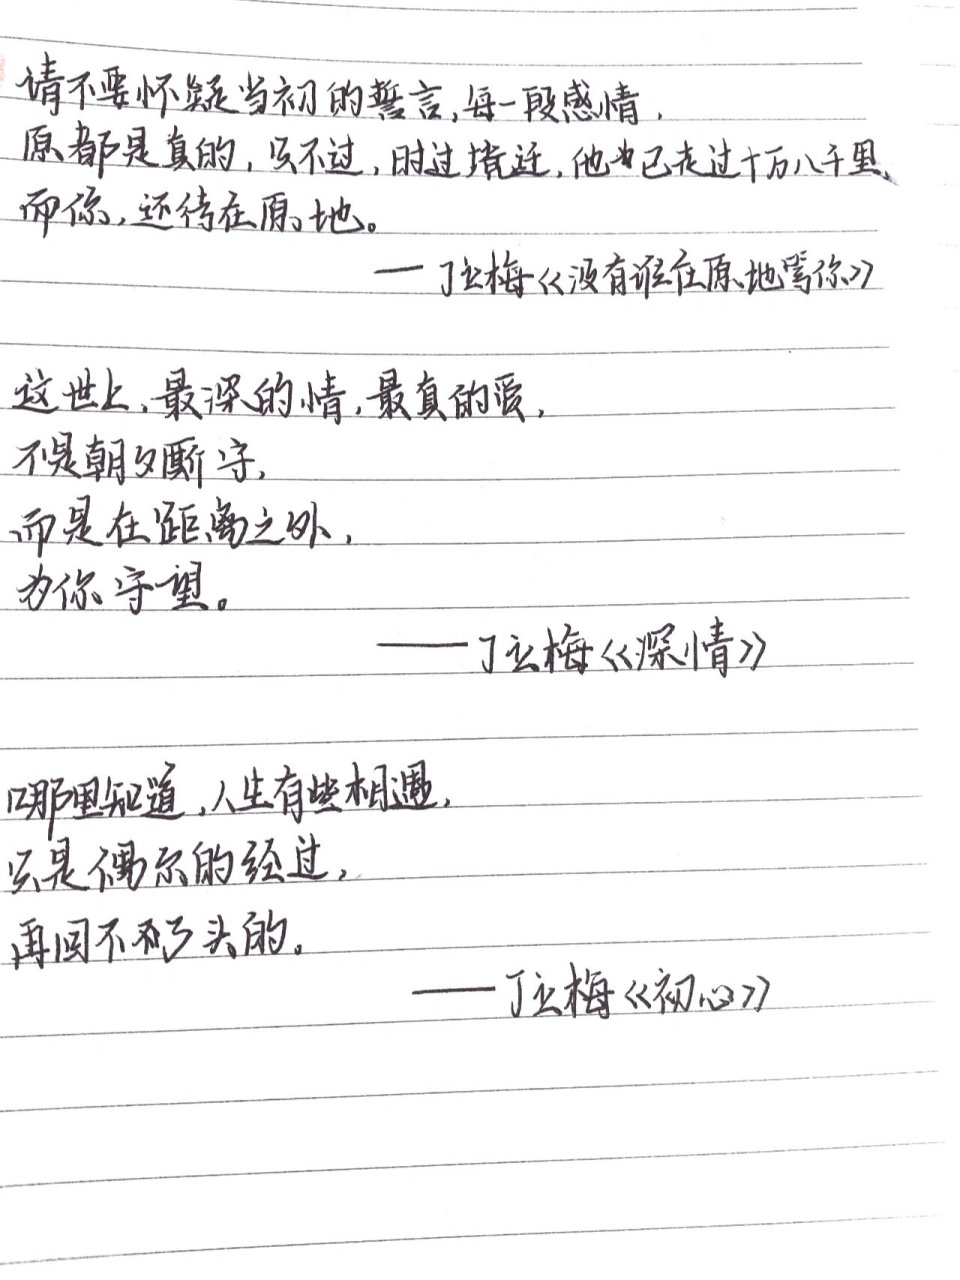 请不要怀疑当初的誓言,每一段感情,
原都是真的,只不过,时过境迁,他也已走过十万八千里,
而你,还待在原地。
——丁立梅《没有谁在原地等你》
这世上,最深的情,最真的爱,
不是朝夕厮守,
而是在距离之外,
为你守望。
——丁立梅《深情》
哪里知道,人生有些相遇,
只是偶尔的经过,
再回不了头的。
——丁立梅《初心》